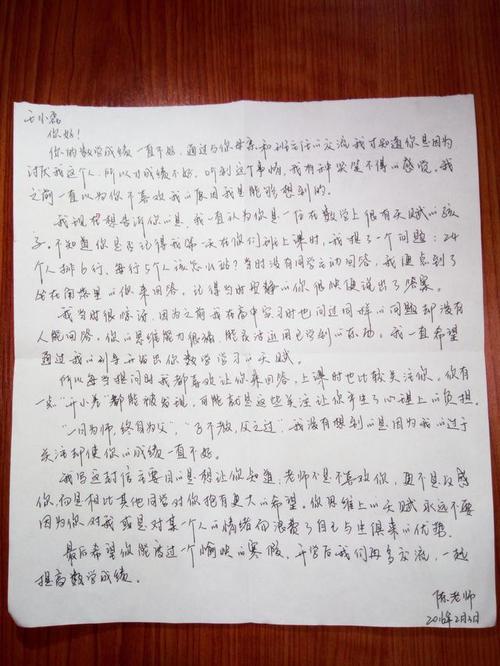 王小磊
你好!
你的数学成绩一直不好,通过与你母亲和班主任的交流我才知道你是因为
讨厌我这个人,所以才成绩不好。听到这个事情,我有种哭笑不得的感觉。我
之前一直以为你不喜欢我的原因我是能够想到的。
我现在想告诉你的是,我一直认为你是一个在数学上很有天赋的孩
子。不知道你是否记得我第一天在你们班上课时,我提了一个问题:24
个人排6行,每行5个人该怎么站?当时没有同学主动回答。我便点到了
坐在角落里的你来回答。记得当时安静的你很快便说出了答案。
我当时很惊讶,因为之前我在高中实习时也问过同样的问题却没有
人能回答。你的思维能力很强,能灵活运用已学到的东西。我一直希望
通过我的引导开发出你数学学习的天赋。
所以每当提问时我都喜欢让你来回答,上课时也比较关注你。你有
一点"开小差"都能被发现,可能就是这些关注让你产生了心理上的负担。
"一日为师,终身为父","子不教,父之过",我没有想到的是因为我的过于
关注却使你的成绩一直不好。
我写这封信主要目的是想让你知道:老师不是不喜欢你,更不是反感
你,而是相比其他同学对你抱有更大的希望。你思维上的天赋永远不要
因为你对我或是对某个人的情绪而浪费了自己与生俱来的优势。
最后希望你能度过一个愉快的寒假,开学后我们再多交流,一起
提高数学成绩。
陈老师
2016年2月3日